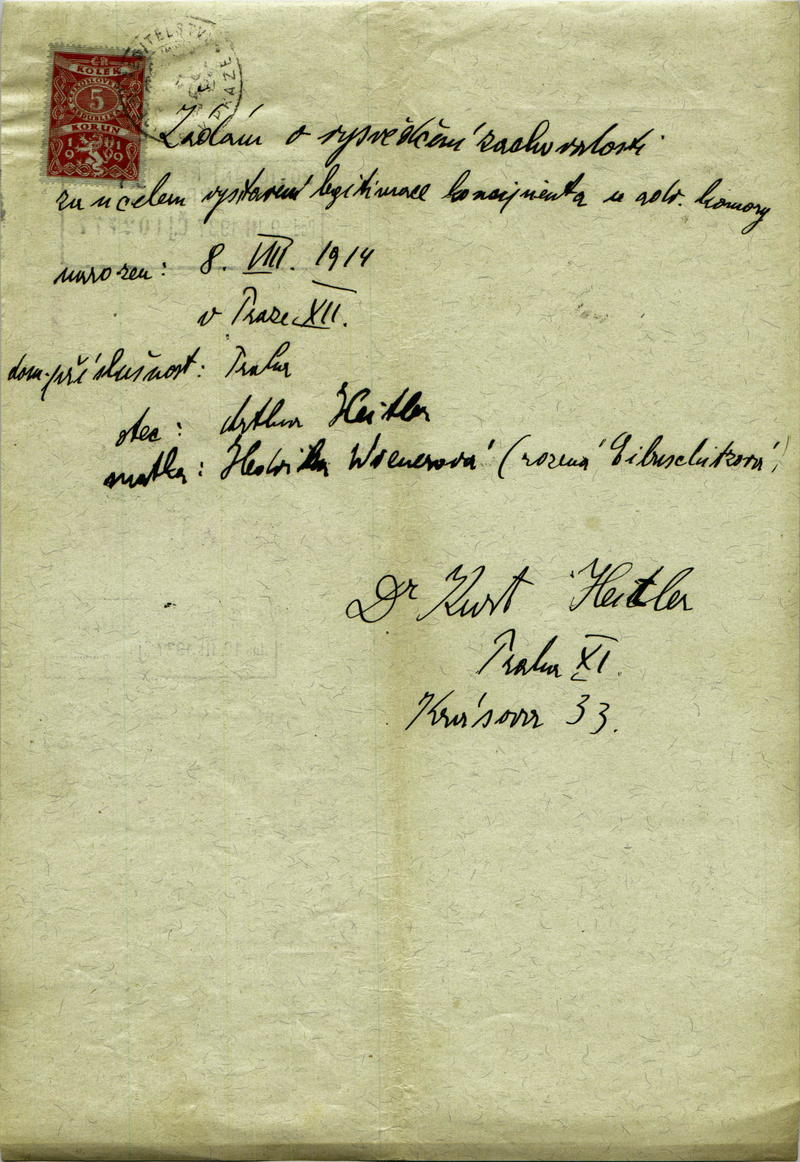 ČR
KOLEK
ČESKOSLOVENSKÁ
5
REPUBLIKA
KORUN
1919
ŘEDITELSTVÍ
PRAZE
Žádám o vysvědčení zachovalosti
za účelem vystavení legitimace koncipienta u adv. komory
narozen: 8. VIII. 1914
v Praze XII.
dom. příslušnost: Praha
otec: Arthur Heitler
matka: Hedvika Wienerová (rozená Eibuschitzová)
Dr Kurt Heitler
Praha XI.
Krásova 33.